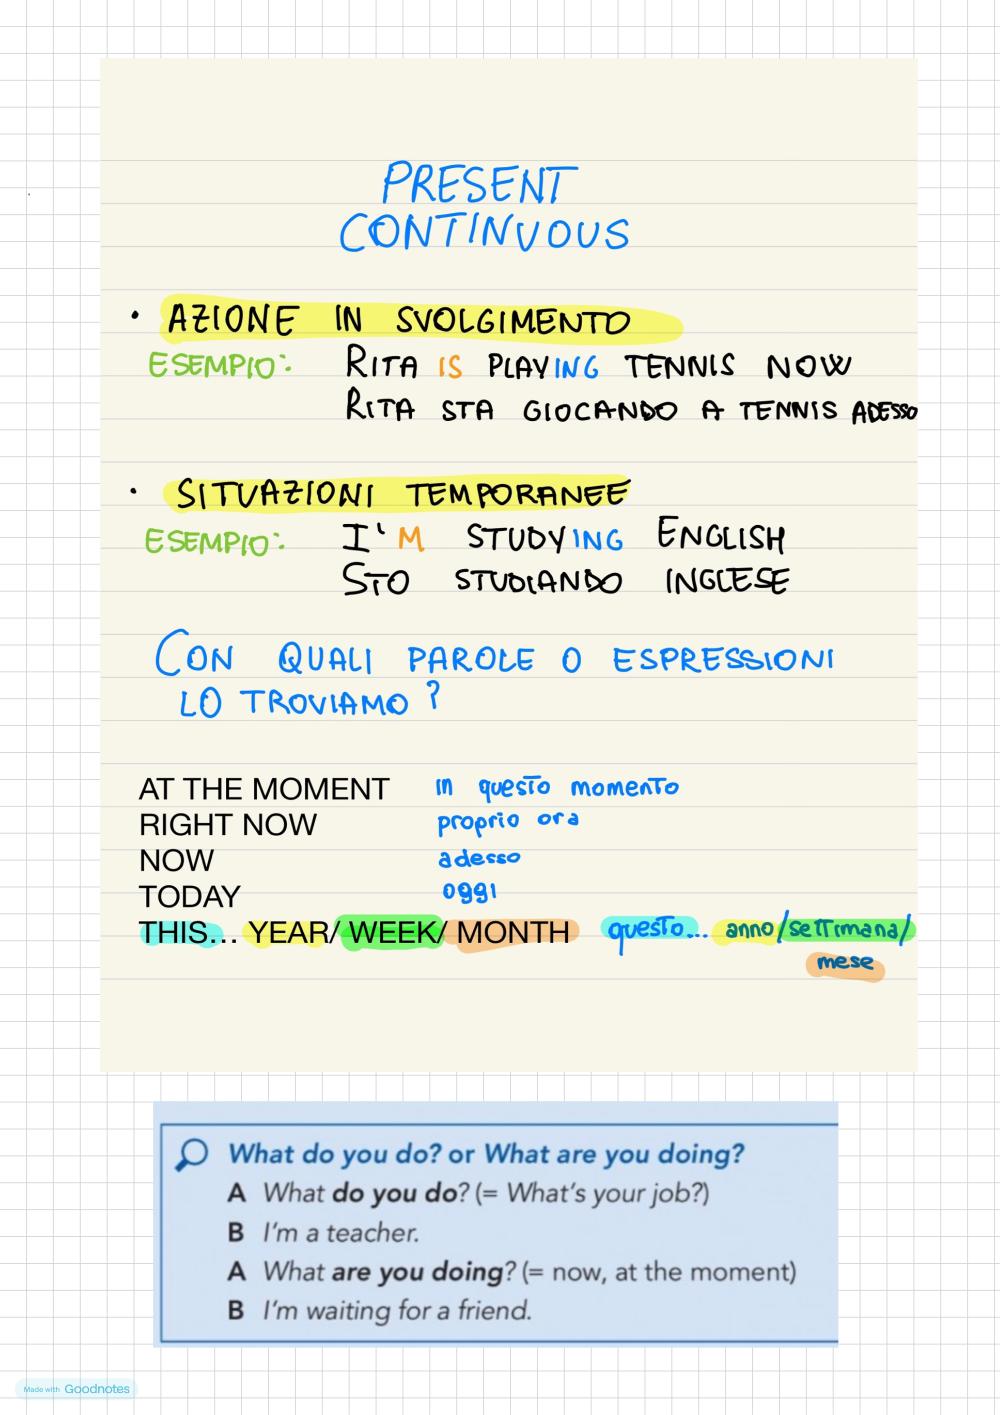 PRESENT
CONTINUOUS
• AZIONE IN SVOLGIMENTO
ESEMPIO: RITA IS PLAYING TENNIS NOW
RITA STA GIOCANDO A TENNIS ADESSO
• SITUAZIONI TEMPORANEE
ESEMPIO: I'M STUDYING ENGLISH
STO STUDIANDO INGLESE
CON QUALI PAROLE O ESPRESSIONI
LO TROVIAMO?
AT THE MOMENT in questo momento
RIGHT NOW proprio ora
NOW adesso
TODAY oggi
THIS... YEAR/ WEEK/ MONTH questo... anno/settimana/
mese
What do you do? or What are you doing?
A What do you do? (= What's your job?)
B I'm a teacher.
A What are you doing? (= now, at the moment)
B I'm waiting for a friend.
Made with Goodnotes